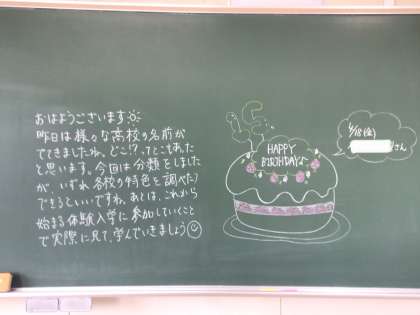 おはようございます
昨日は様々な高校の名前が
でてきましたね。どこ!?ってとこもあった
と思います。今回は分類をしました
が、いずれ各校の特色を調べたり
できるといいですね。あとは、これから
始まる体験入学に参加していくこと
で実際に見て、学んでいきましょう
15
HAPPY
BIRTHDAY♪
6/18(金)
さん